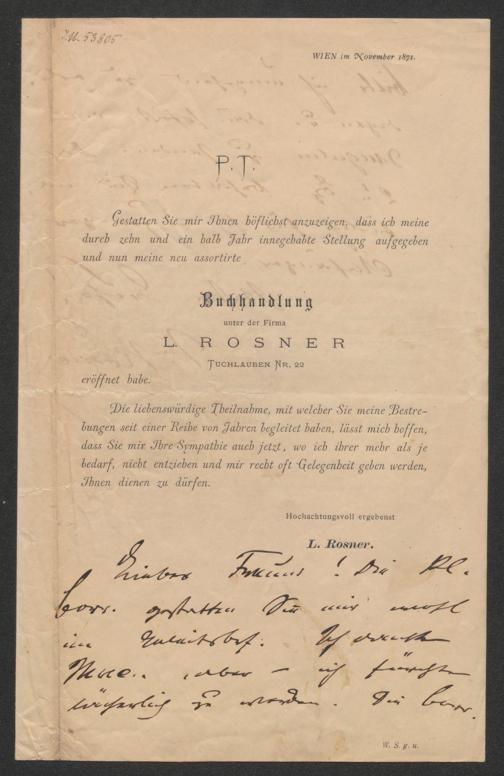 I.N. 53805
WIEN im November 1871.
P. T.
Gestatten Sie mir Ihnen höflichst anzuzeigen, dass ich meine
durch zehn und ein halb Jahr innegehabte Stellung aufgegeben
und nun meine neu assortirte
Buchhandlung
unter der Firma
L. ROSNER
TUCHLAUBEN NR. 22
eröffnet habe.
Die liebenswürdige Theilnahme, mit welcher Sie meine Bestre-
bungen seit einer Reihe von Jahren begleitet haben, lässt mich hoffen,
dass Sie mir Ihre Sympathie auch jetzt, wo ich ihrer mehr als je
bedarf, nicht entziehen und mir recht oft Gelegenheit geben werden,
Ihnen dienen zu dürfen.
Hochachtungsvoll ergebenst
L. Rosner.
Lieber Freund! Die
Corr. gestatten Sie mir wohl
im
aber – ich fürchte
lächerlich zu werden. Die Corr.
W. S. g. u.